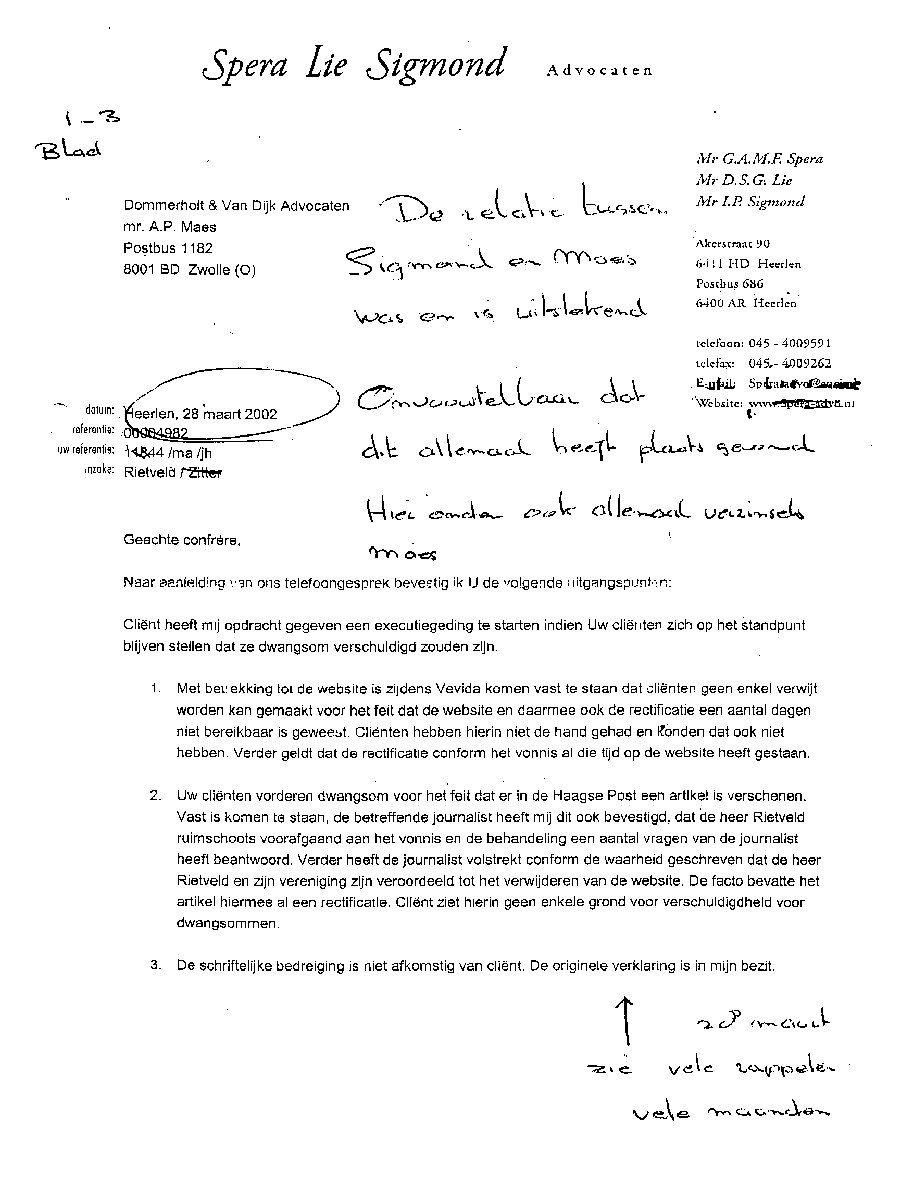 Spera Lie Sigmond Advocaten
1 - 3
Blad
Mr G.A.M.F. Spera
Mr D.S.G. Lie
Mr I.P. Sigmond
Akerstraat 90
6411 HD Heerlen
Postbus 686
6400 AR Heerlen
telefoon: 045 - 4009591
telefax: 045 - 4009262
E-mail:
Website:
Dommerholt & Van Dijk Advocaten
mr. A.P. Maes
Postbus 1182
8001 BD Zwolle (O)
De relatie tussen
Sigmond en Maes
was en is uitstekend
datum: Heerlen, 28 maart 2002
referentie: 00004982
uw referentie: 11844 /ma /jh
inzake: Rietveld / Zitter
Onvoorstelbaar dat
dit allemaal heeft plaats gevond
Hier onder ook allemaal verzinsels
Maes
Geachte confrère,
Naar aanleiding van ons telefoongesprek bevestig ik U de volgende uitgangspunten:
Cliënt heeft mij opdracht gegeven een executiegeding te starten indien Uw cliënten zich op het standpunt
blijven stellen dat ze dwangsom verschuldigd zouden zijn.
1. Met betrekking tot de website is zijdens Vevida komen vast te staan dat cliënten geen enkel verwijt
worden kan gemaakt voor het feit dat de website en daarmee ook de rectificatie een aantal dagen
niet bereikbaar is geweest. Cliënten hebben hierin niet de hand gehad en konden dat ook niet
hebben. Verder geldt dat de rectificatie conform het vonnis al die tijd op de website heeft gestaan.
2. Uw cliënten vorderen dwangsom voor het feit dat er in de Haagse Post een artikel is verschenen.
Vast is komen te staan, de betreffende journalist heeft mij dit ook bevestigd, dat de heer Rietveld
ruimschoots voorafgaand aan het vonnis en de behandeling een aantal vragen van de journalist
heeft beantwoord. Verder heeft de journalist volstrekt conform de waarheid geschreven dat de heer
Rietveld en zijn vereniging zijn veroordeeld tot het verwijderen van de website. De facto bevatte het
artikel hiermee al een rectificatie. Cliënt ziet hierin geen enkele grond voor verschuldigdheid voor
dwangsommen.
3. De schriftelijke bedreiging is niet afkomstig van cliënt. De originele verklaring is in mijn bezit.
28 maart
zie vele rappelen
vele maanden